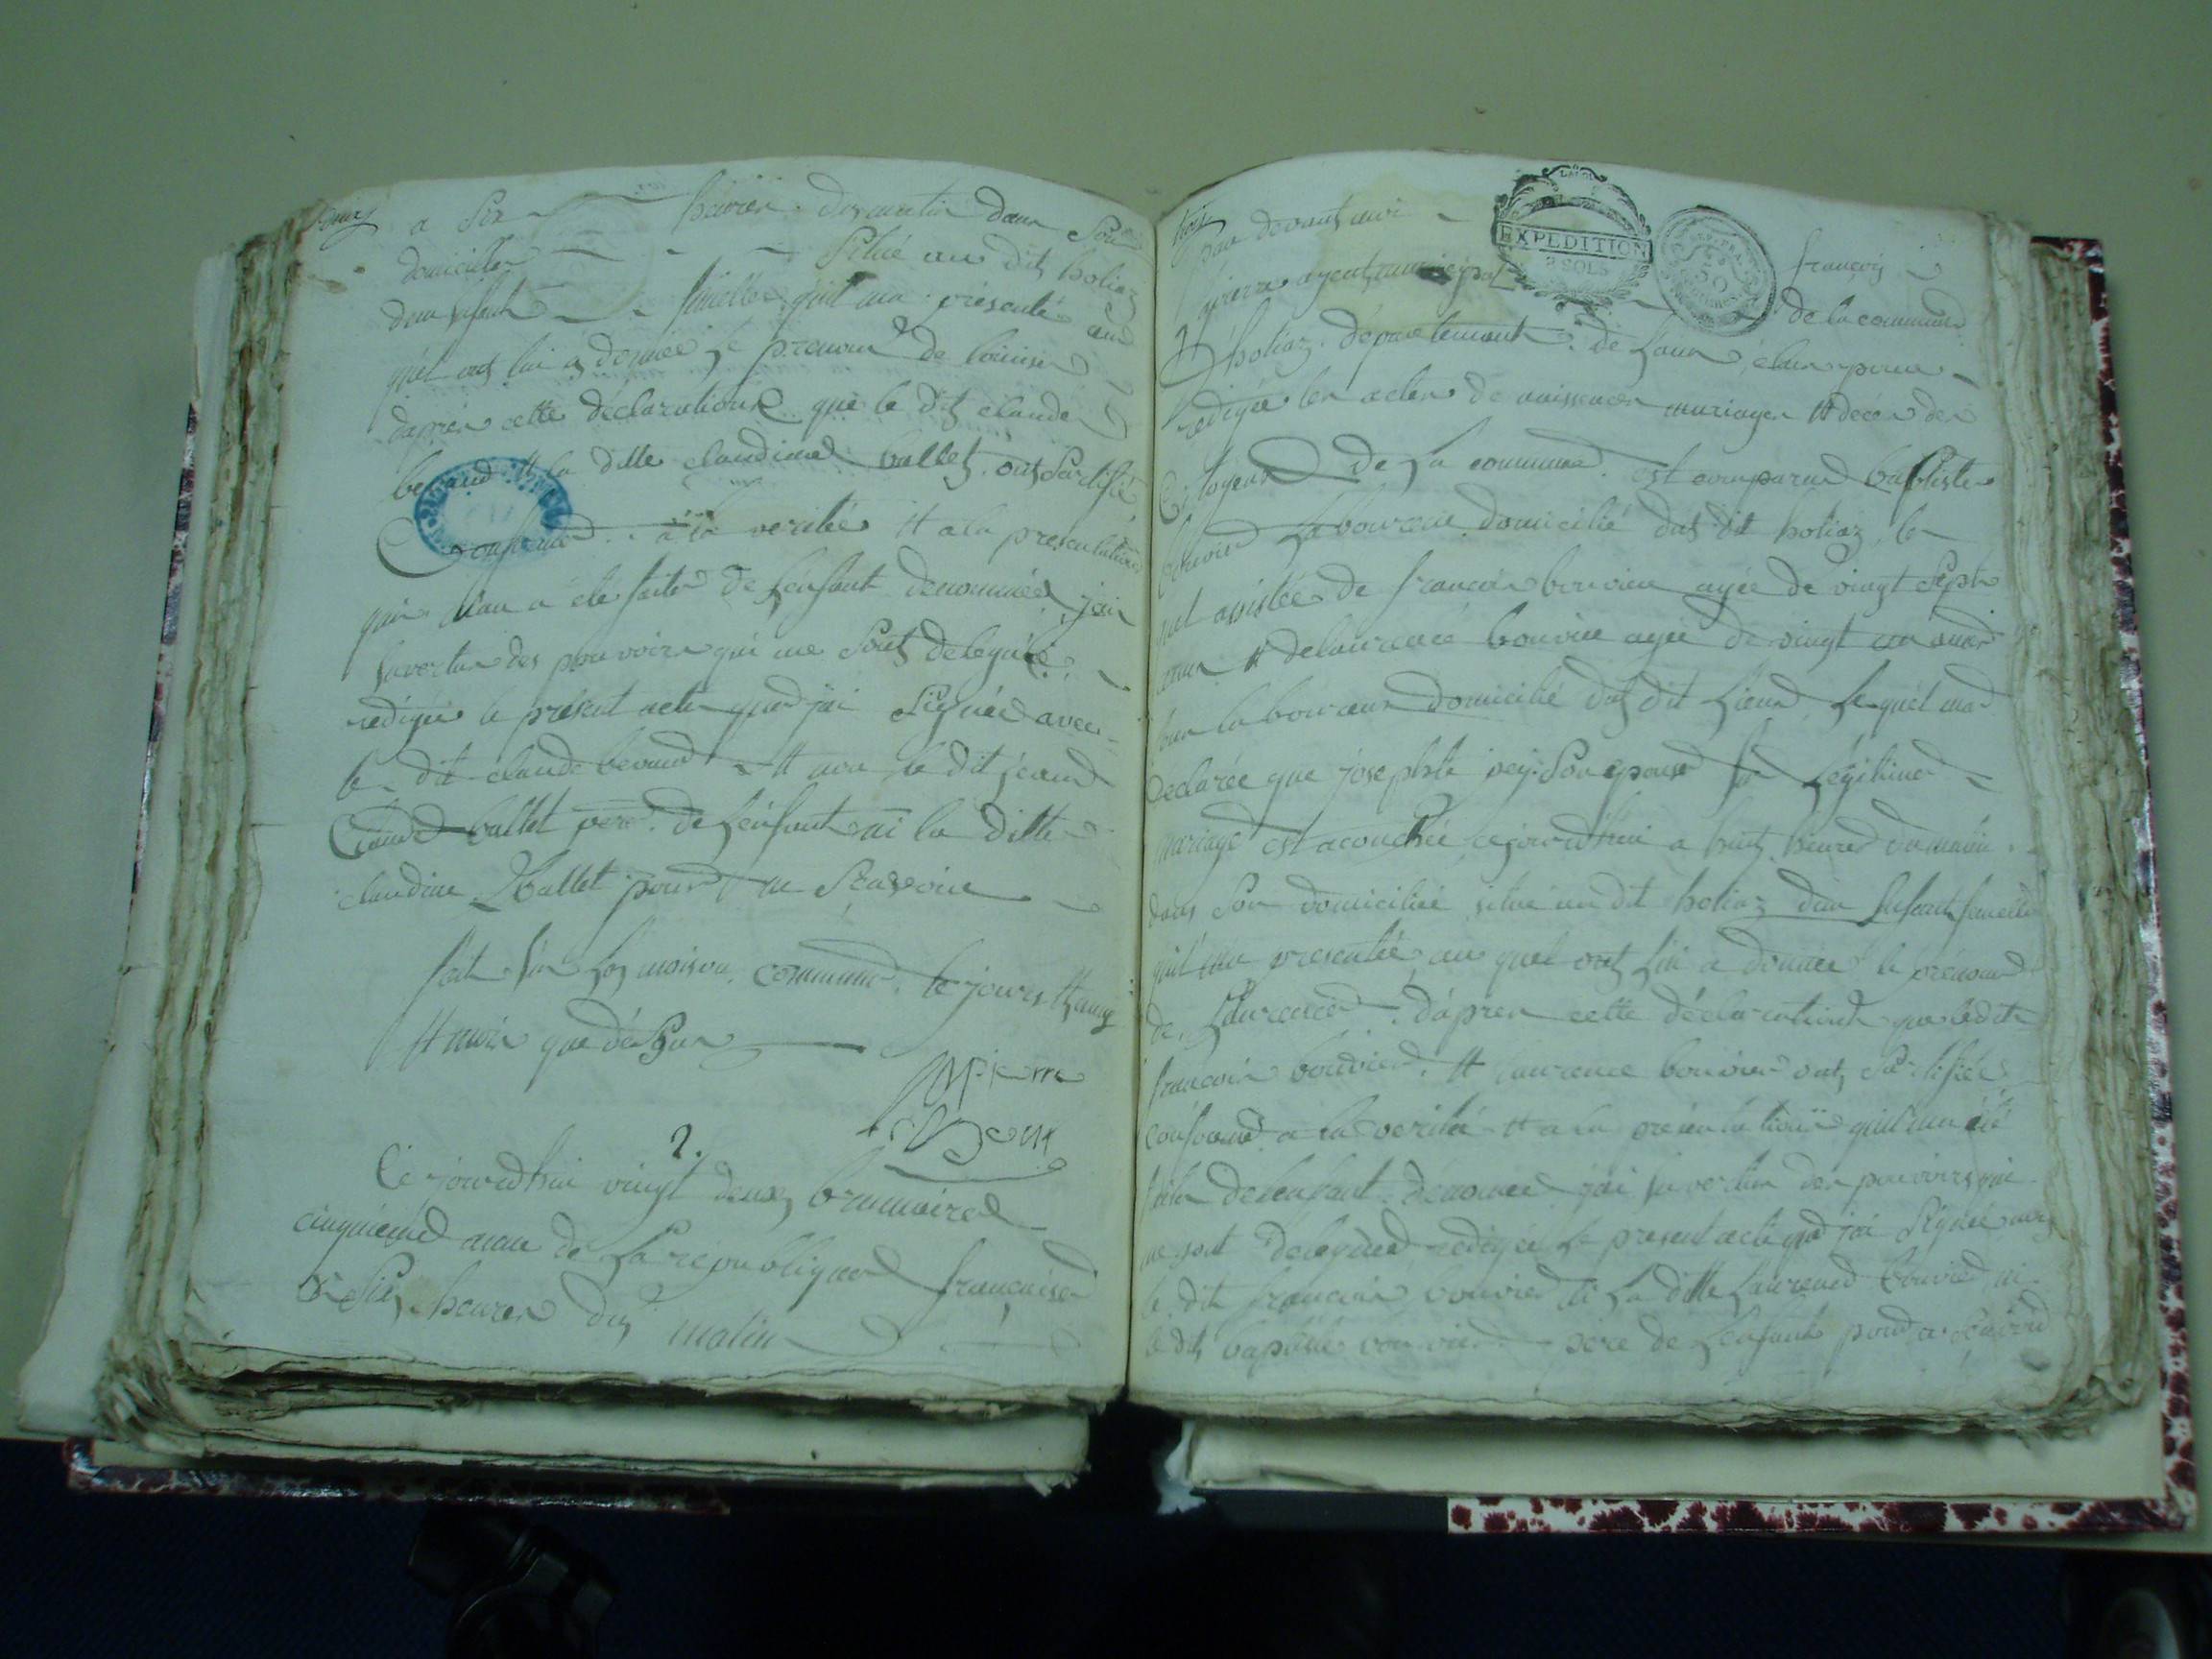 a Six heures du matin dans Son
domicille Situé au dit hotiaz
dun enfant femelle quil ma présenté au
quel ont lui a donnée le prenom de
daprès cette déclaration que le dit claude
bevand et la ditte claudine ballet ont Sertifié
Conforme a la verité et a la presentation
qui man a été faite de Lenfant denommée jai
Envertu des pouvoirs qui me Sont delegués
redigée le présent acte que jai Signée avec
le dit claude bevand et non le dit jean
Claude ballet pere de Lenfant ni la ditte
claudine Ballet pour ne Scavoir
fait En La maison commune le jour et an
et mois que désus
JMPierre
Beve
2.
Cejourdhui vingt deux brumaire
cinquieme anné de La république française
a Six heures du matin
trois
par devant moi françois
pierre agent municipal de la commune
hotiaz département de Lain élu pour
redigée les actes de naissences mariages et décès des
Citoyens de La commune est comparue baptiste
bouvier Laboureur domicilié dudit hotiaz le
quel assistée de françois bouvier agée de vingt Sept
ans et delaurence bouvier agée de vingt un ans
tous laboureur domicilié du dit Lieux Lequel ma
declarée que josephte pey Son epouse En Legitime
mariage est acouchée cejourdhui a huit heures du matin
dans Son domicilié situé au dit hotiaz dun Enfant femelle
quil ma presentée au quel ont lui a donnée le prenom
de Laurence dáprès cette déclaration que ledit
francois bouvier et laurence bouvier ont Sertifiée
Conforme a la verité et a la présentation quil ma été
faite delenfant denomee jai Envertu des pouvoirs qui
me sont delegués redigée Le present acte que jai Signée avec
le dit francois bouvier ni La ditte Laurence bouvier ni
le dit baptiste bouvier pere de Lenfant pour
EXPEDITION
2 SOLS
50